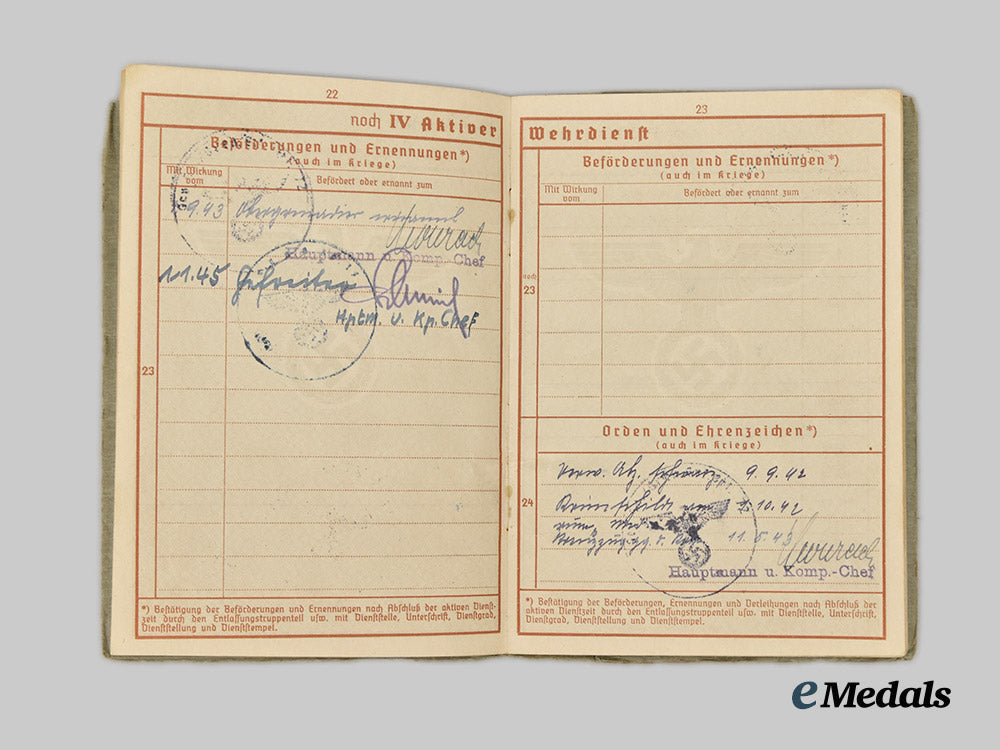 22
noch IV Aktiver
Beförderungen und Ernennungen*)
(auch im Kriege)
Mit Wirkung
vom
Befördert oder ernannt zum
9.43 Obergrenadier ernannt
Hauptmann u. Komp. Chef
1.1.45 Gefreiter
Hptm. u. Kp. Chef
23
*) Bestätigung der Beförderungen und Ernennungen nach Abschluß der aktiven Dienst-
zeit durch den Entlassungstruppenteil usw. mit Dienststelle, Unterschrift, Dienstgrad,
Dienststellung und Dienststempel.
23
Wehrdienst
Beförderungen und Ernennungen*)
(auch im Kriege)
Mit Wirkung
vom
Befördert oder ernannt zum
noch
23
Orden und Ehrenzeichen*)
(auch im Kriege)
24
Verw. Abz. schwarz 9.9.42
Krimschild 10.42
rum. 11.5.43
Hauptmann u. Komp.-Chef
*) Bestätigung der Beförderungen, Ernennungen und Verleihungen nach Abschluß der
aktiven Dienstzeit durch den Entlassungstruppenteil usw. mit Dienststelle, Unterschrift,
Dienstgrad, Dienststellung und Dienststempel.
eMedals